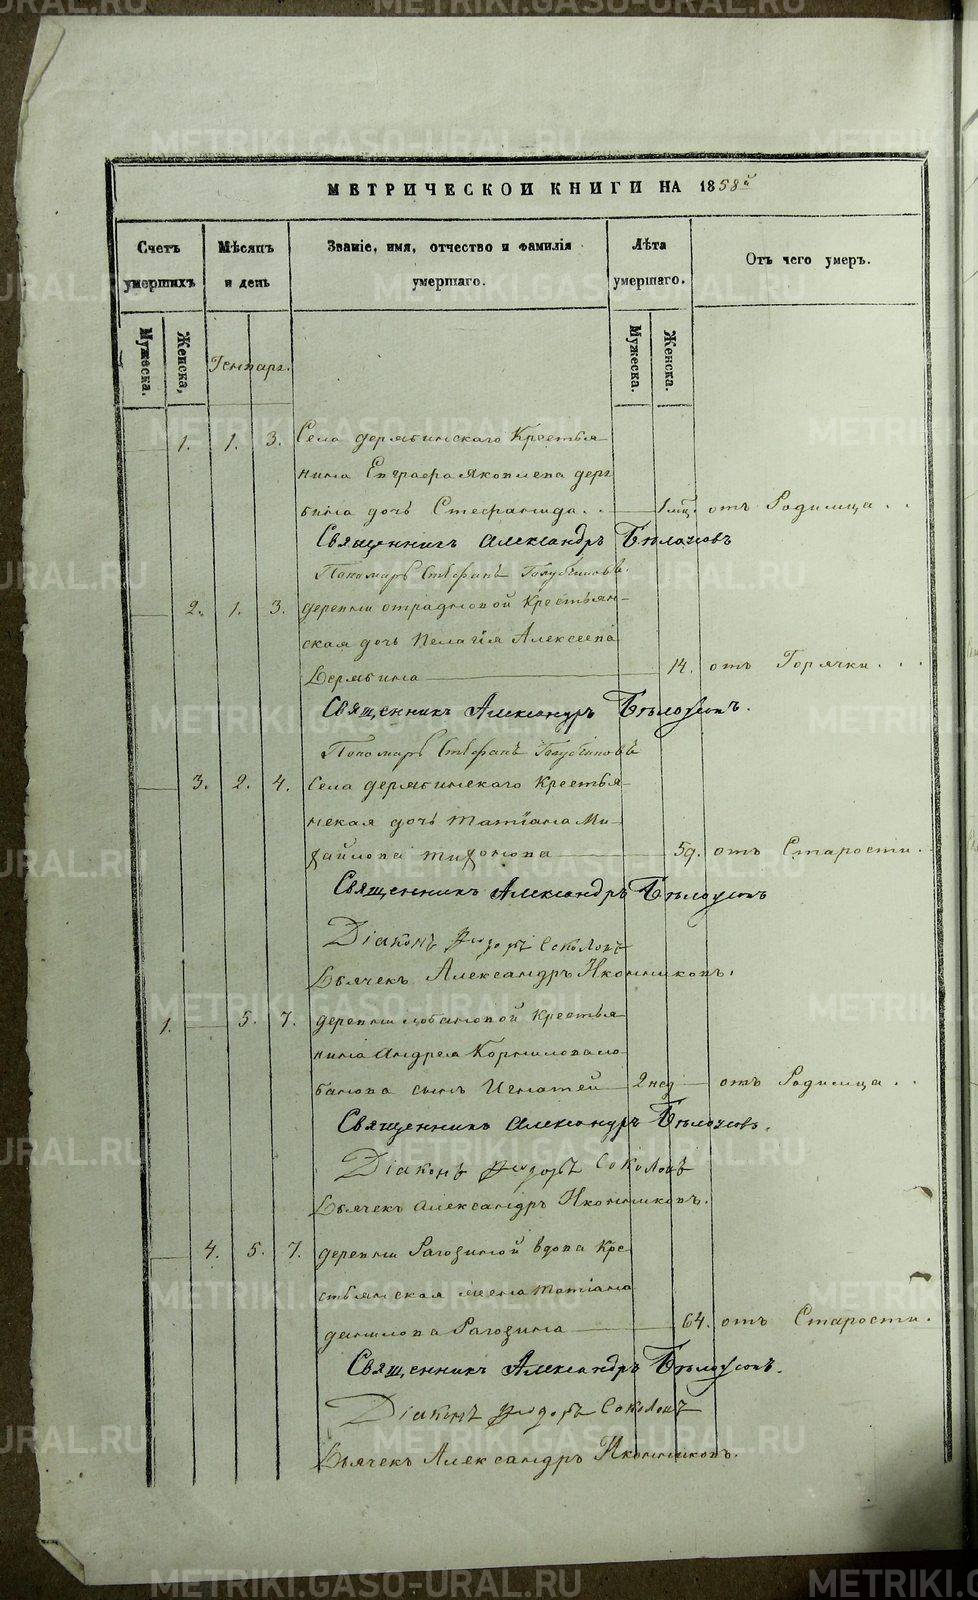 МЕТРИЧЕСКОЙ КНИГИ НА 1858й
Счетъ умершихъ
Мѣсяцъ и день
Званіе, имя, отчество и фамилія умершаго.
Лѣта умершаго.
Отъ чего умеръ.
Мужеска.
Женска,
Мужеска.
Женска.
Генварь.
1. 1. 3. Села дерябинскаго Крестья
нина Евграфа Яковлева деря
бина дочь Стефанида . . 1 мц. отъ Родимца . .
Священникъ Александръ Бѣлоусовъ
Пономарь Стефанъ Голубчиковъ.
2. 1. 3. деревни отрадновой Крестьян-
ская дочь Пелагія Алексеева
Дерябина 14. отъ Горячки . . .
Священникъ Александръ Бѣлоусовъ.
Пономарь Стефанъ Голубчиковъ
3. 2. 4. Села дерябинскаго Крестья-
нская дочь Татіана Ми-
хайлова тихонова 59. отъ Старости .
Священникъ Александръ Бѣлоусовъ
Діаконъ Феодоръ Соколовъ
Дьячекъ Александръ Иконниковъ.
1. 5. 7. деревни лобановой Крестья
нина Андрея Корнилова ло
банова сынъ Игнатей 2 нед отъ Родимца . .
Священникъ Александръ Бѣлоусовъ.
Діаконъ Феодоръ Соколовъ
Дьячекъ Александръ Иконниковъ.
4. 5. 7. деревни Рагозиной вдова Кре
стьянская жена Татіана
данилова Рагозина 64. отъ Старости .
Священникъ Александръ Бѣлоусовъ.
Діаконъ Феодоръ Соколовъ
Дьячекъ Александръ Иконниковъ.
METRIKI.GASO-URAL.RU